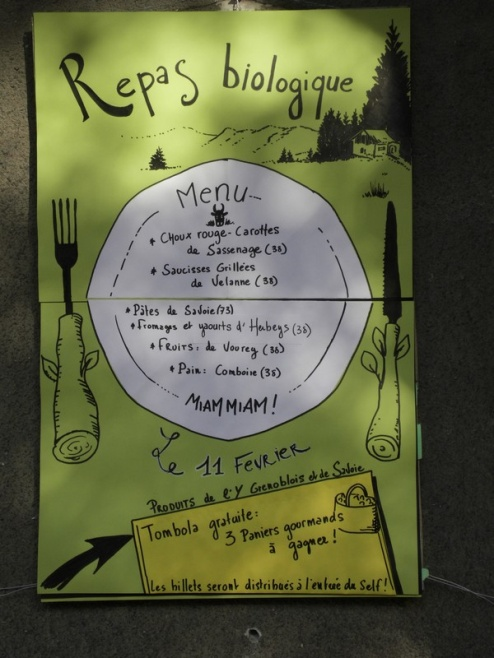 Repas biologique
Menu
* Choux rouge-Carottes
de Sassenage (38)
* Saucisses Grillées
de Velanne (38)
* Pâtes de Savoie (73)
* Fromages et yaourts d'Herbeys (38)
* FRUITS: de Vourey (38)
* Pain: Comboire (38)
MIAM MIAM!
Le 11 Février
Produits de l'Y Grenoblois et de Savoie
Tombola gratuite:
3 Paniers gourmands
à gagner!
Les billets seront distribués à l'entrée du Self!